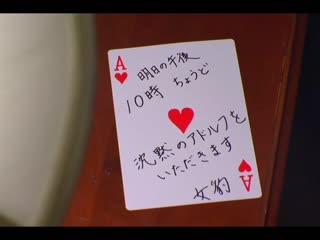 A
明日の午後
10時 ちょうど
沈黙のアドルフを
いただきます
女豹
A